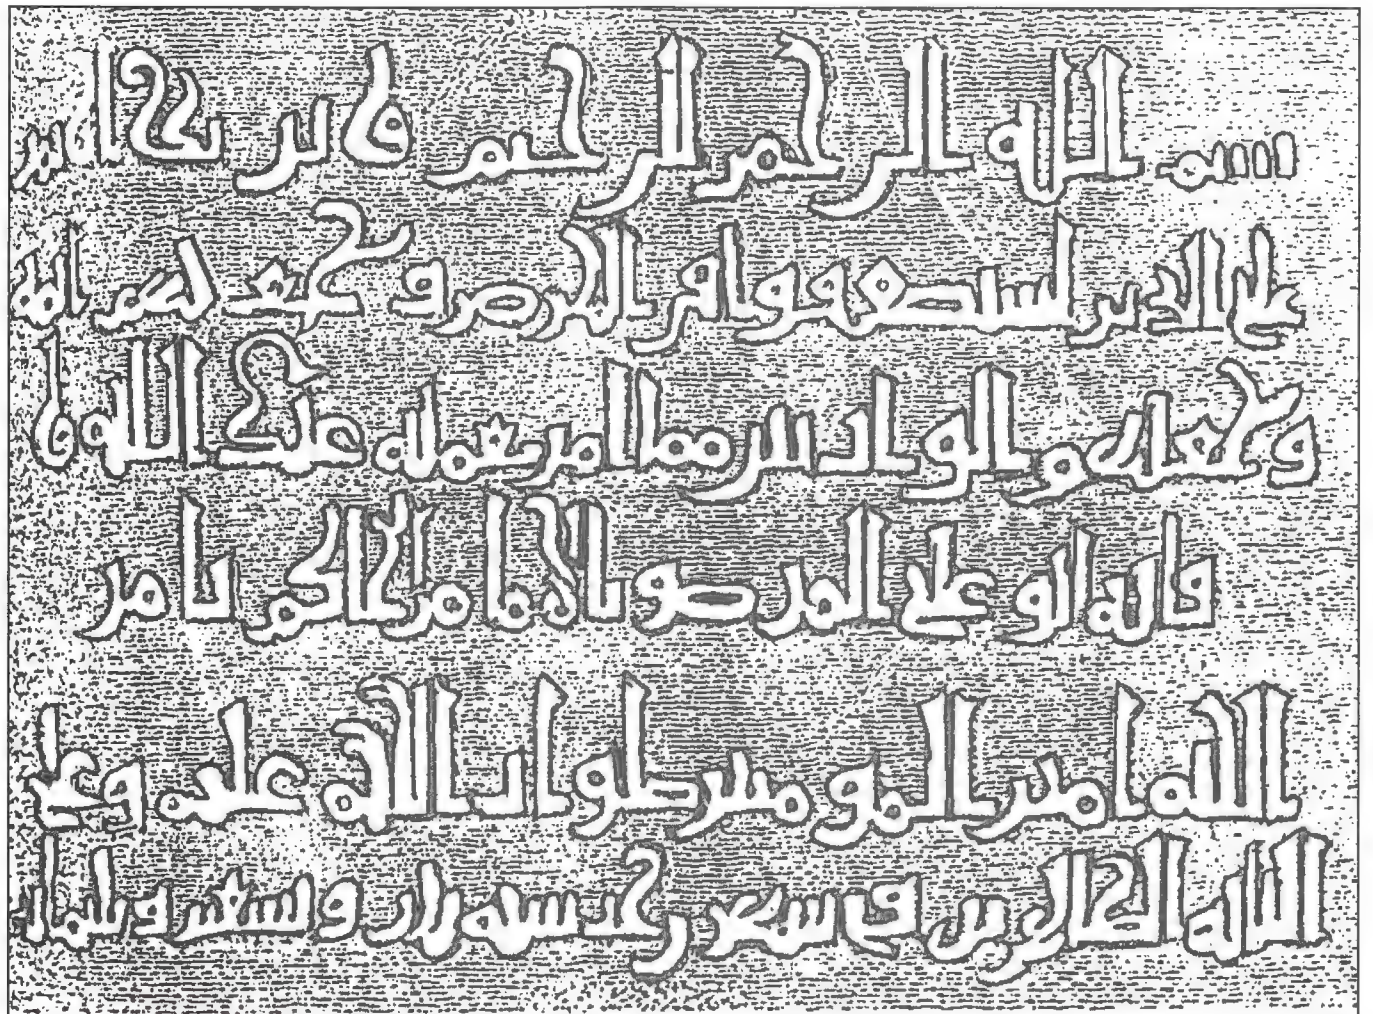 بسم الله الرحمن الرحيم ونريد أن نمن
على الذين استضعفوا في الأرض ونجعلهم أئمة
ونجعلهم الوارثين مما أمر بعمله عبد الله وو
ليه أبو علي المنصور الإمام الحاكم بأمر
الله أمير المؤمنين صلوات الله عليه وعلى
الطاهرين في شهر رجب سنة ثلث وتسعين وثلثماية